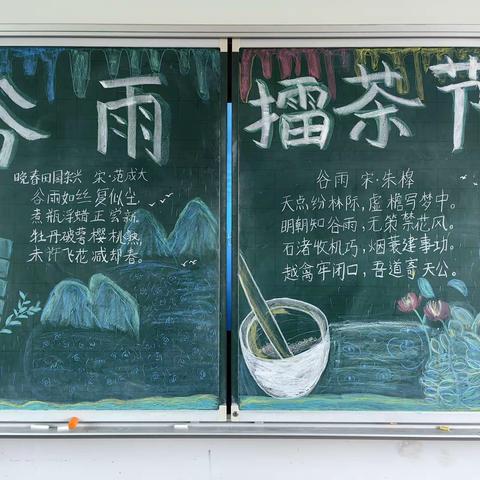 谷雨
晚春田园杂兴 宋·范成大
谷雨如丝复似尘,
煮瓶浮蜡正尝新,
牡丹破萼樱桃熟,
未许飞花减却春。
擂茶节
谷雨 宋·朱槔
天点纷林际,虚檐写梦中。
明朝知谷雨,无策禁花风。
石渚收机巧,烟蓑建事功。
越禽牢闭口,吾道寄天公。